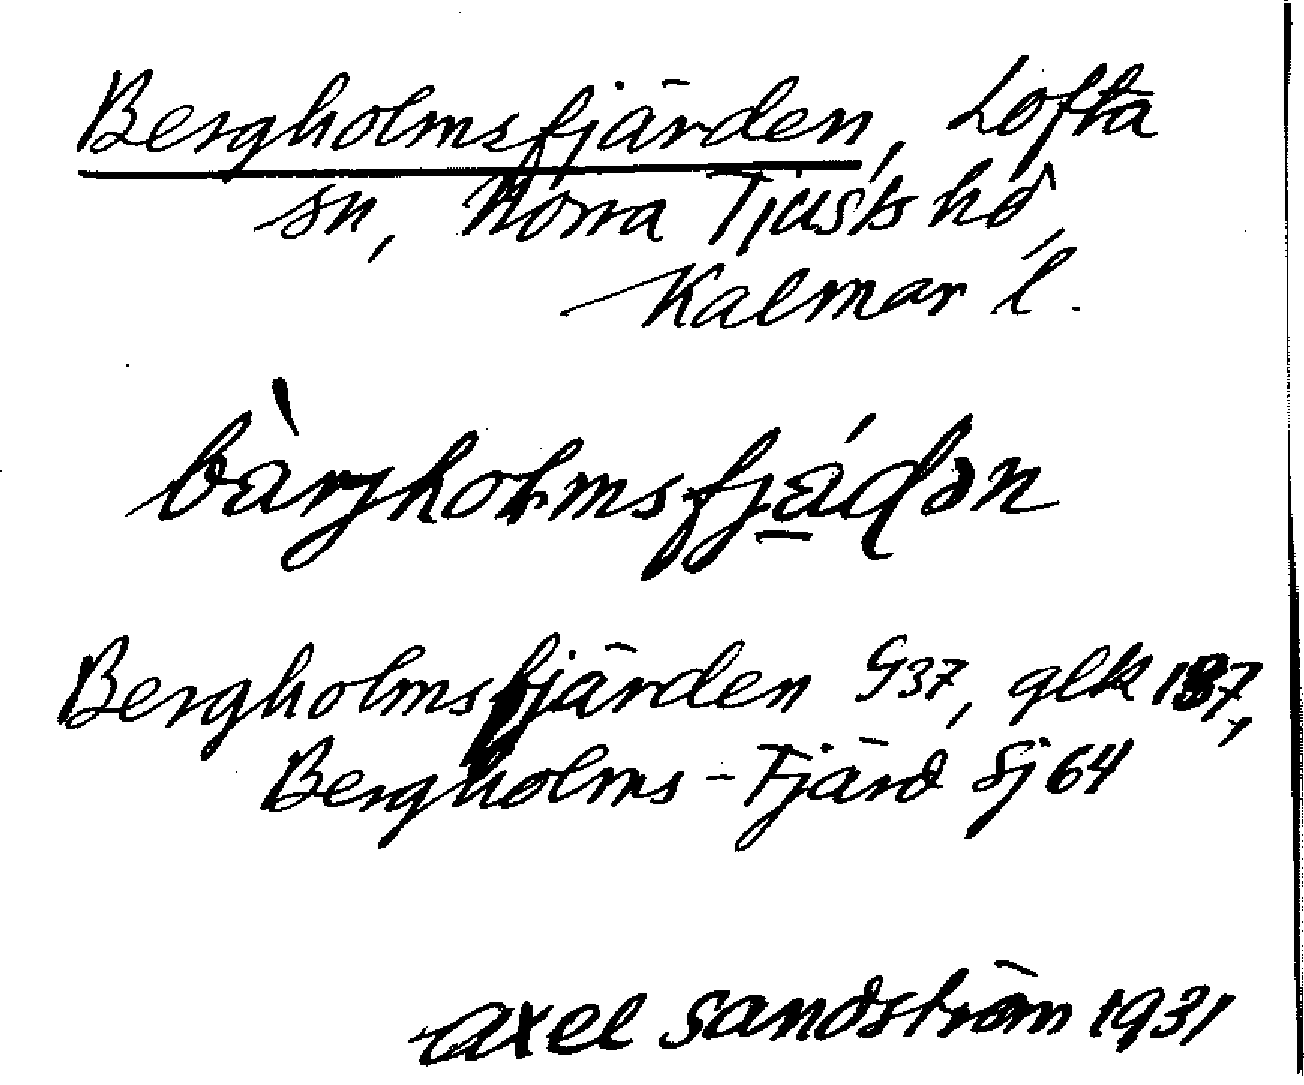 Bergholmsfjärden, Lofta
sn, Norra Tjusts hd,
Kalmar l.
bàrjholmsfjá̱dən
Bergholmsfjärden G37, glk 1937,
Bergholms-Fjärd Sj 64
Axel Sandström 1931